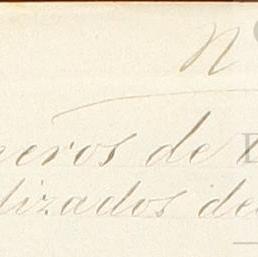 N
neros de
lizados de